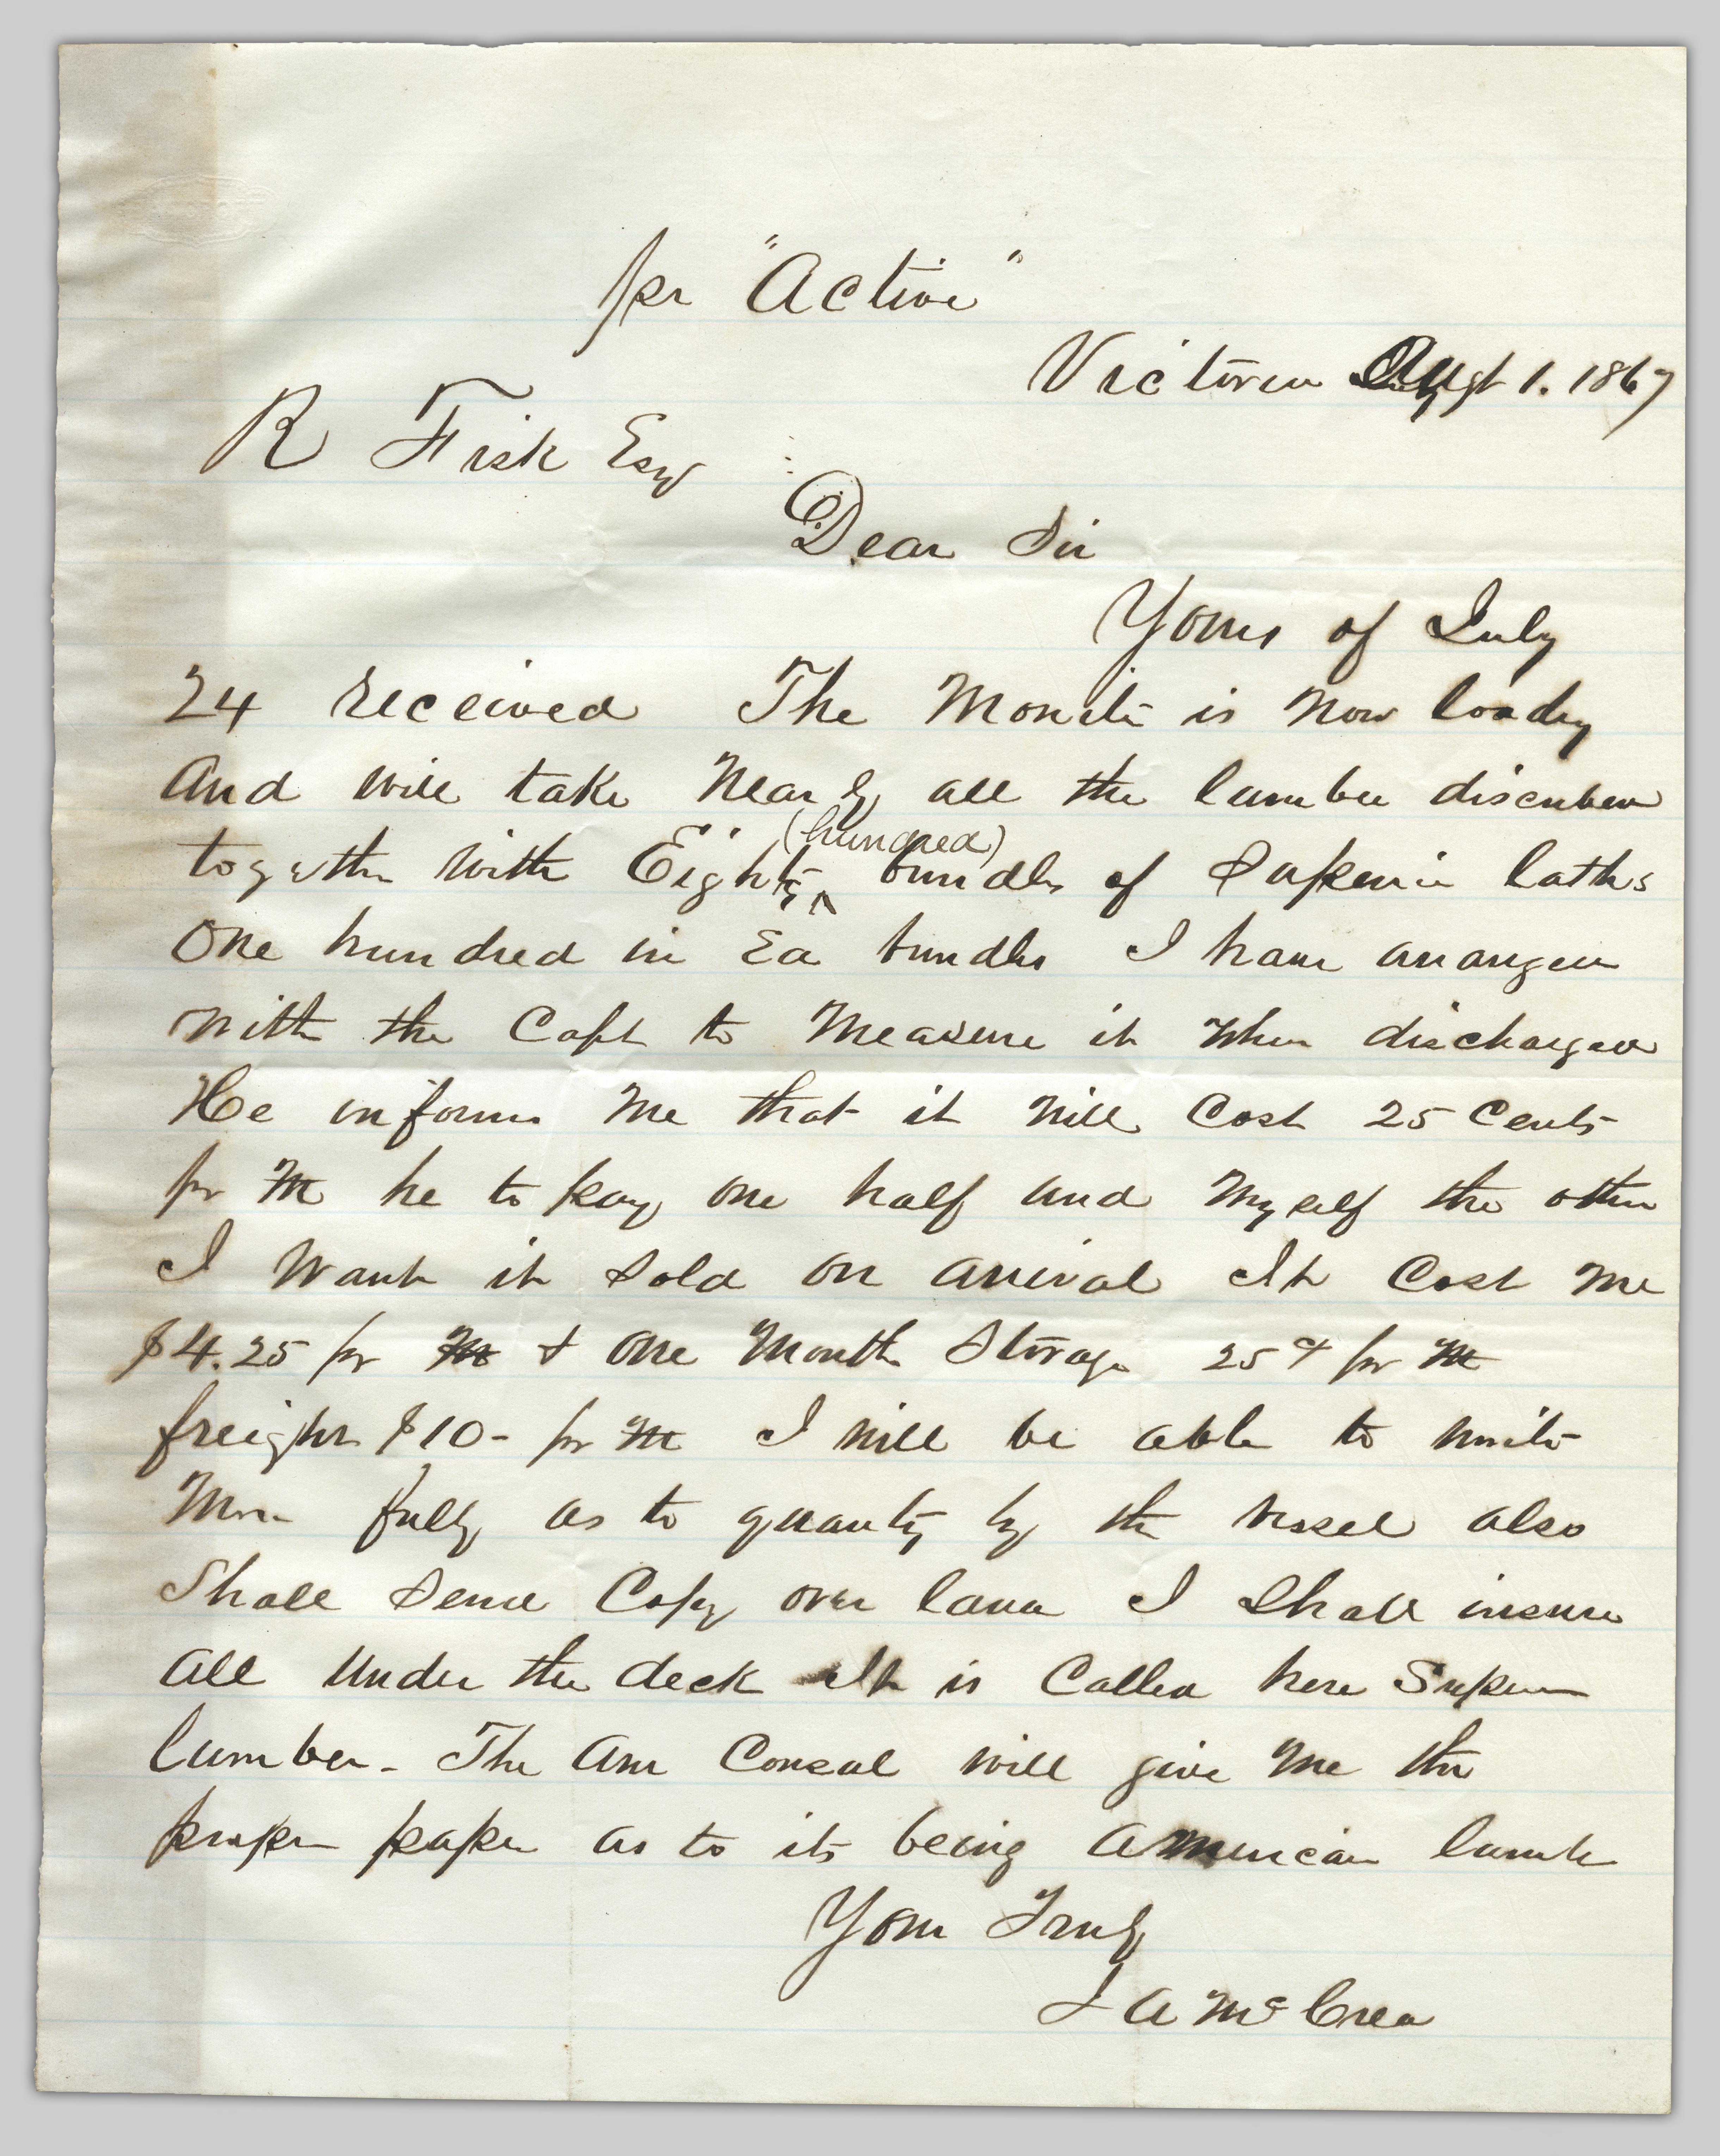 pr "Active"
Victoria Augst 1. 1867
R Fisk Esq
Dear Sir
Yours of July
24 received The Monitor is now loading
and will take nearly all the lumber
together with Eighty (hundred) bundles of Superior laths
One hundred in Ea bundles I have arranged
with the Capt to Measure it when discharged
He informs me that it will Cost 25 Cents
pr M he to pay one half and myself the other
I want it Sold on arrival It Cost me
$4.25 pr M & one Month Storage 25¢ pr M
freight $10- pr M I will be able to write
More fully as to quantity by the vessel also
Shall Send Copy over land I Shall insure
all under the deck It is Called here Superior
lumber. The Am Consul will give me the
proper paper as to its being American lumber
Yours Truly
J A McCrea